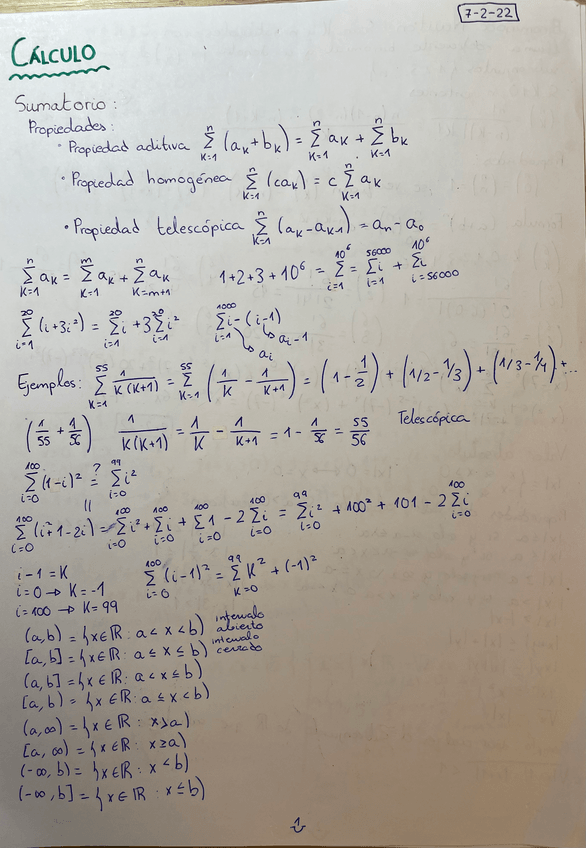 7-2-22
CÁLCULO
Sumatorio:
Propiedades:
· Propiedad aditiva ∑_{K=1}^{n} (a_K + b_K) = ∑_{K=1}^{n} a_K + ∑_{K=1}^{n} b_K
· Propiedad homogénea ∑_{K=1}^{n} (ca_K) = c ∑_{K=1}^{n} a_K
· Propiedad telescópica ∑_{K=1}^{n} (a_K - a_{K-1}) = a_n - a_0
∑_{K=1}^{n} a_K = ∑_{K=1}^{m} a_K + ∑_{K=m+1}^{n} a_K    1+2+3+10^6 = ∑_{i=1}^{10^6} = ∑_{i=1}^{56000} i + ∑_{i=56000}^{10^6} i
∑_{i=1}^{20} (i+3i^2) = ∑_{i=1}^{20} i + 3∑_{i=1}^{20} i^2    ∑_{i=1}^{1000} i - (i-1)
a_i    a_i - 1
Ejemplos: ∑_{K=1}^{55} 1/(K(K+1)) = ∑_{K=1}^{55} (1/K - 1/(K+1)) = (1 - 1/2) + (1/2 - 1/3) + (1/3 - 1/4) + ...
(1/55 + 1/56)    1/(K(K+1)) = 1/K - 1/(K+1) = 1 - 1/56 = 55/56    Telescópica
∑_{i=0}^{100} (1-i)^2 =? ∑_{i=0}^{99} i^2
||
∑_{i=0}^{100} (i^2+1-2i) = ∑_{i=0}^{100} i^2 + ∑_{i=0}^{100} i + ∑_{i=0}^{100} 1 - 2∑_{i=0}^{100} i = ∑_{i=0}^{99} i^2 + 100^2 + 101 - 2∑_{i=0}^{100} i
i-1 = K    ∑_{i=0}^{100} (i-1)^2 = ∑_{K=0}^{99} K^2 + (-1)^2
i=0 → K=-1
i=100 → K=99
(a,b) = {x∈ℝ: a<x<b} intervalo abierto
[a,b] = {x∈ℝ: a≤x≤b} intervalo cerrado
(a,b] = {x∈ℝ: a<x≤b}
[a,b) = {x∈ℝ: a≤x<b}
(a,∞) = {x∈ℝ: x>a}
[a,∞) = {x∈ℝ: x≥a}
(-∞,b) = {x∈ℝ: x<b}
(-∞,b] = {x∈ℝ: x≤b}
1